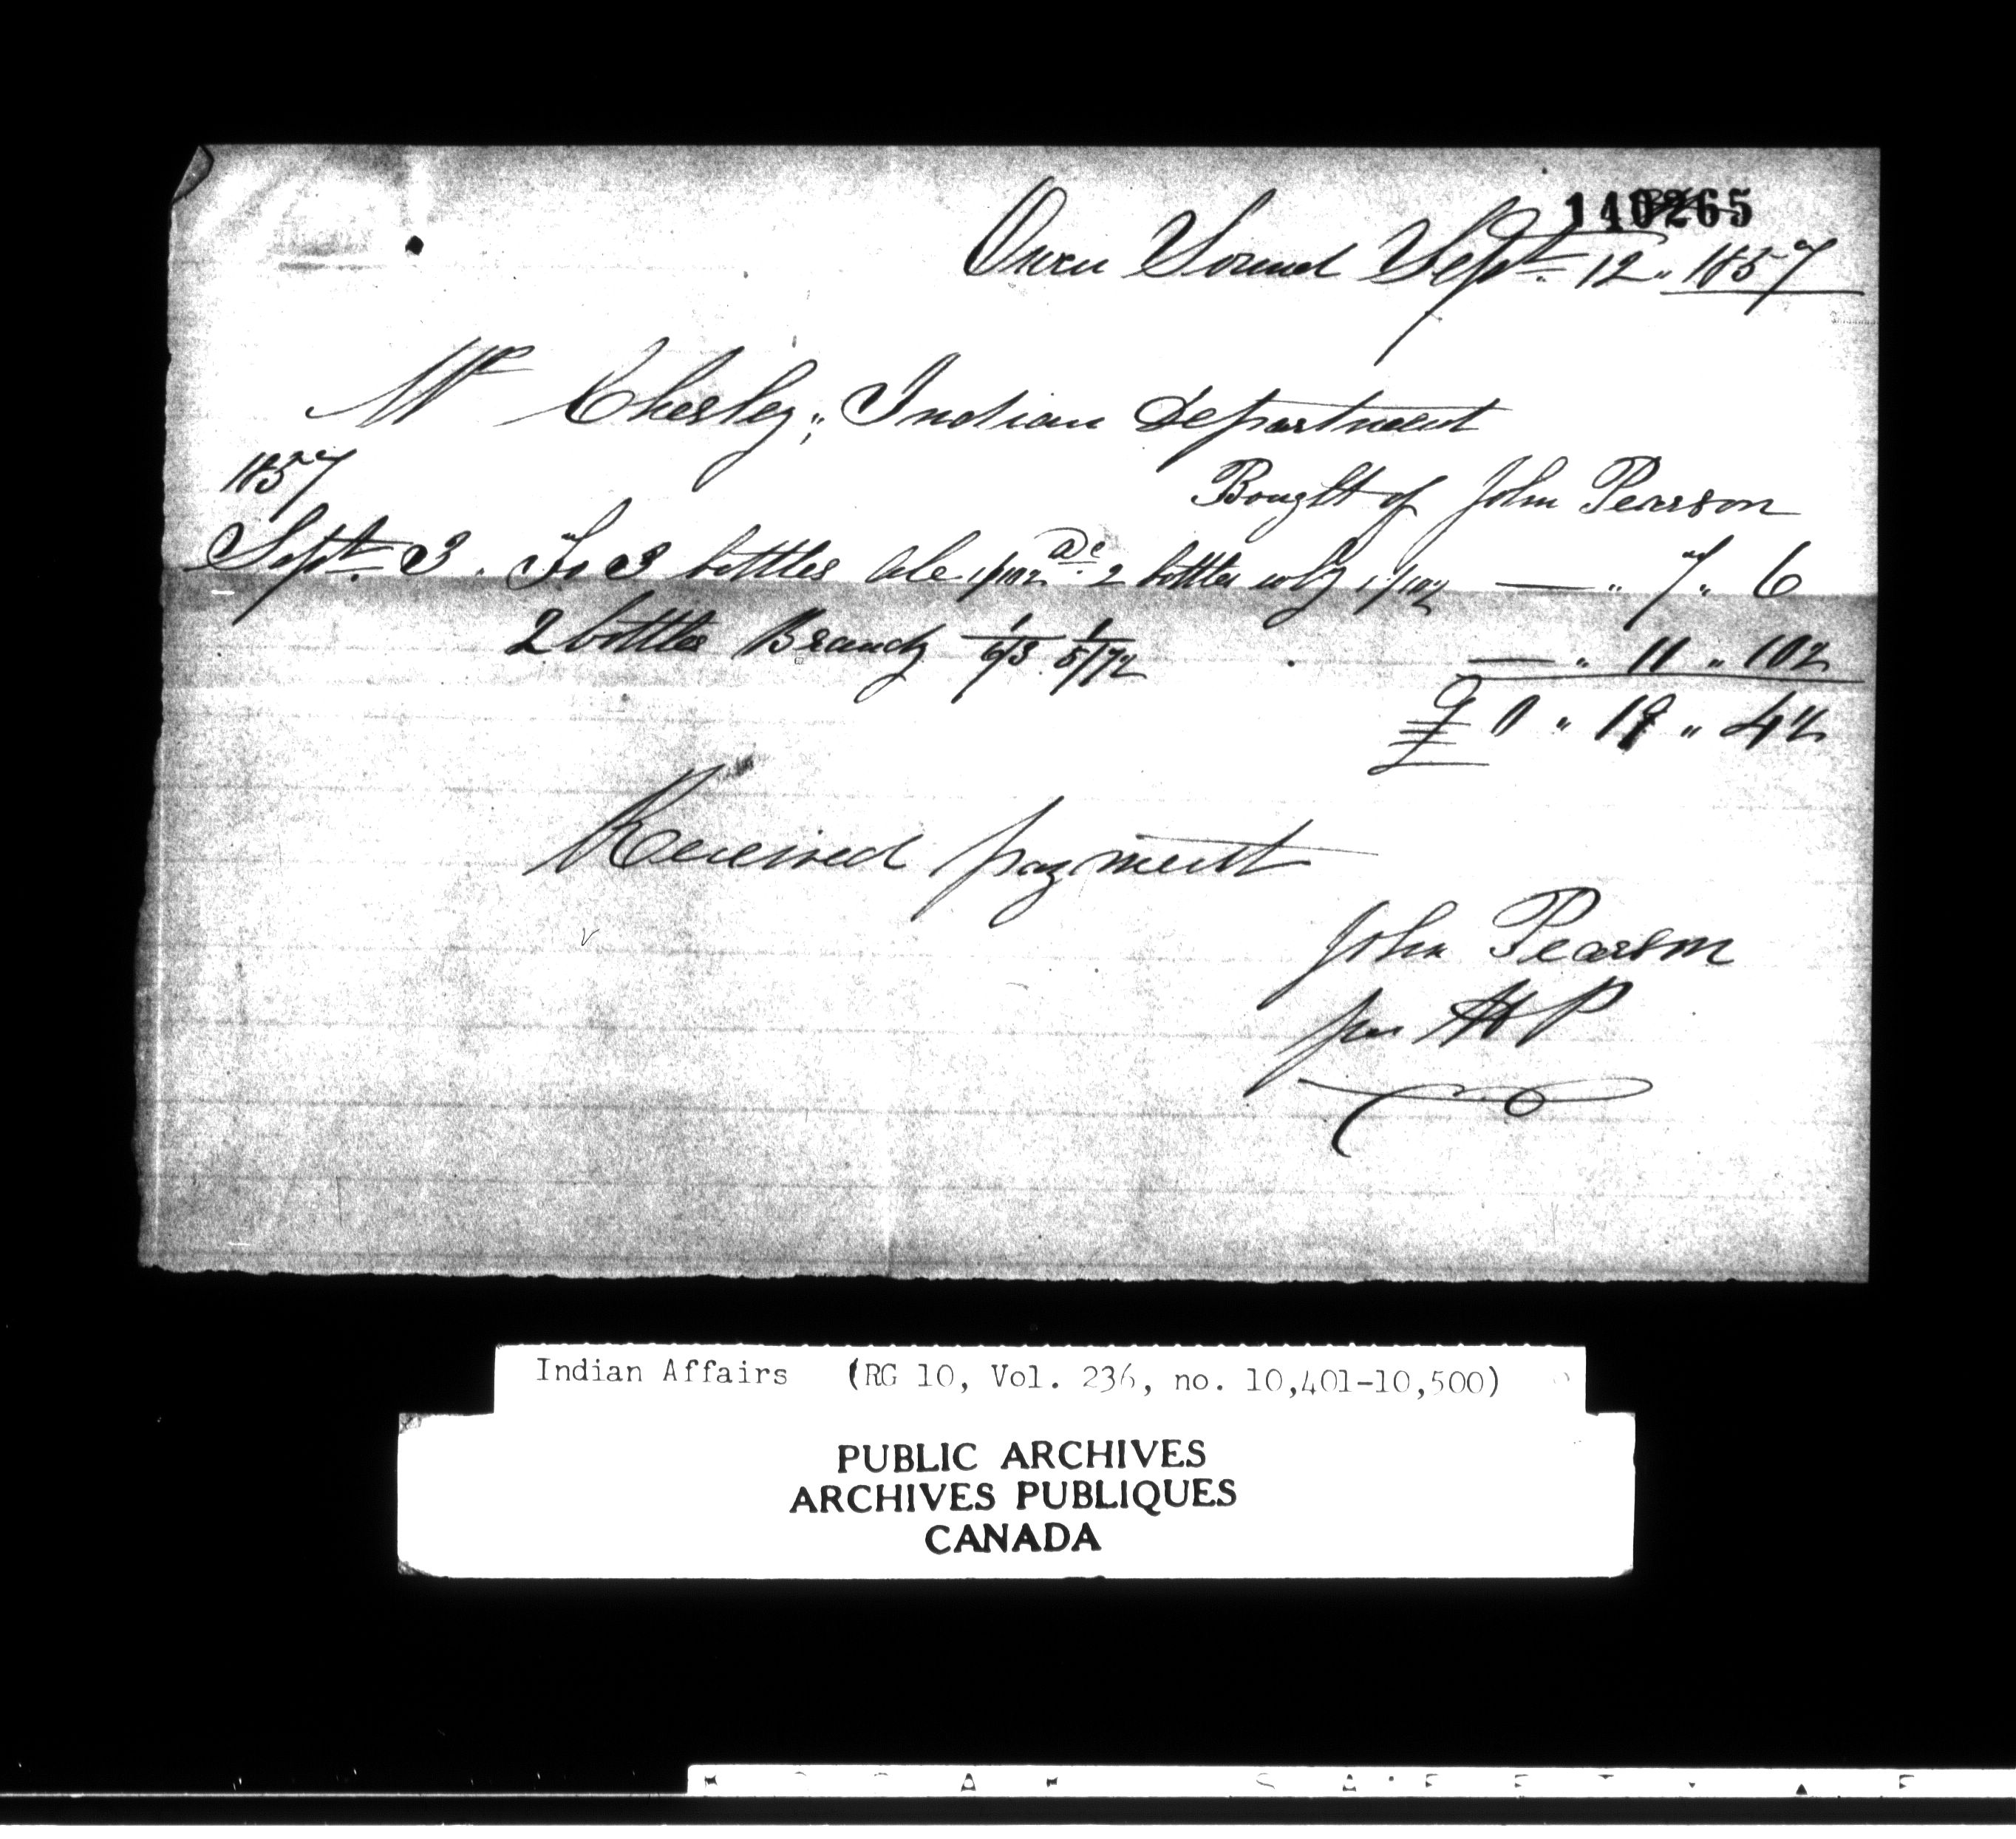 140265
Owen Sound Septr 12 " 1857
Mr Chesley; Indian Department
1857
Bought of John Pearson
Sept. 3. To 3 bottles Ale 2 bottles — " 7 " 6
2 bottles Brandy 6/3 5/7½ — " 11 " 10½
£ 0 " 19 " 4½
Received payment
John Pearson
per HP
Indian Affairs (RG 10, Vol. 236, no. 10,401-10,500)
PUBLIC ARCHIVES
ARCHIVES PUBLIQUES
CANADA